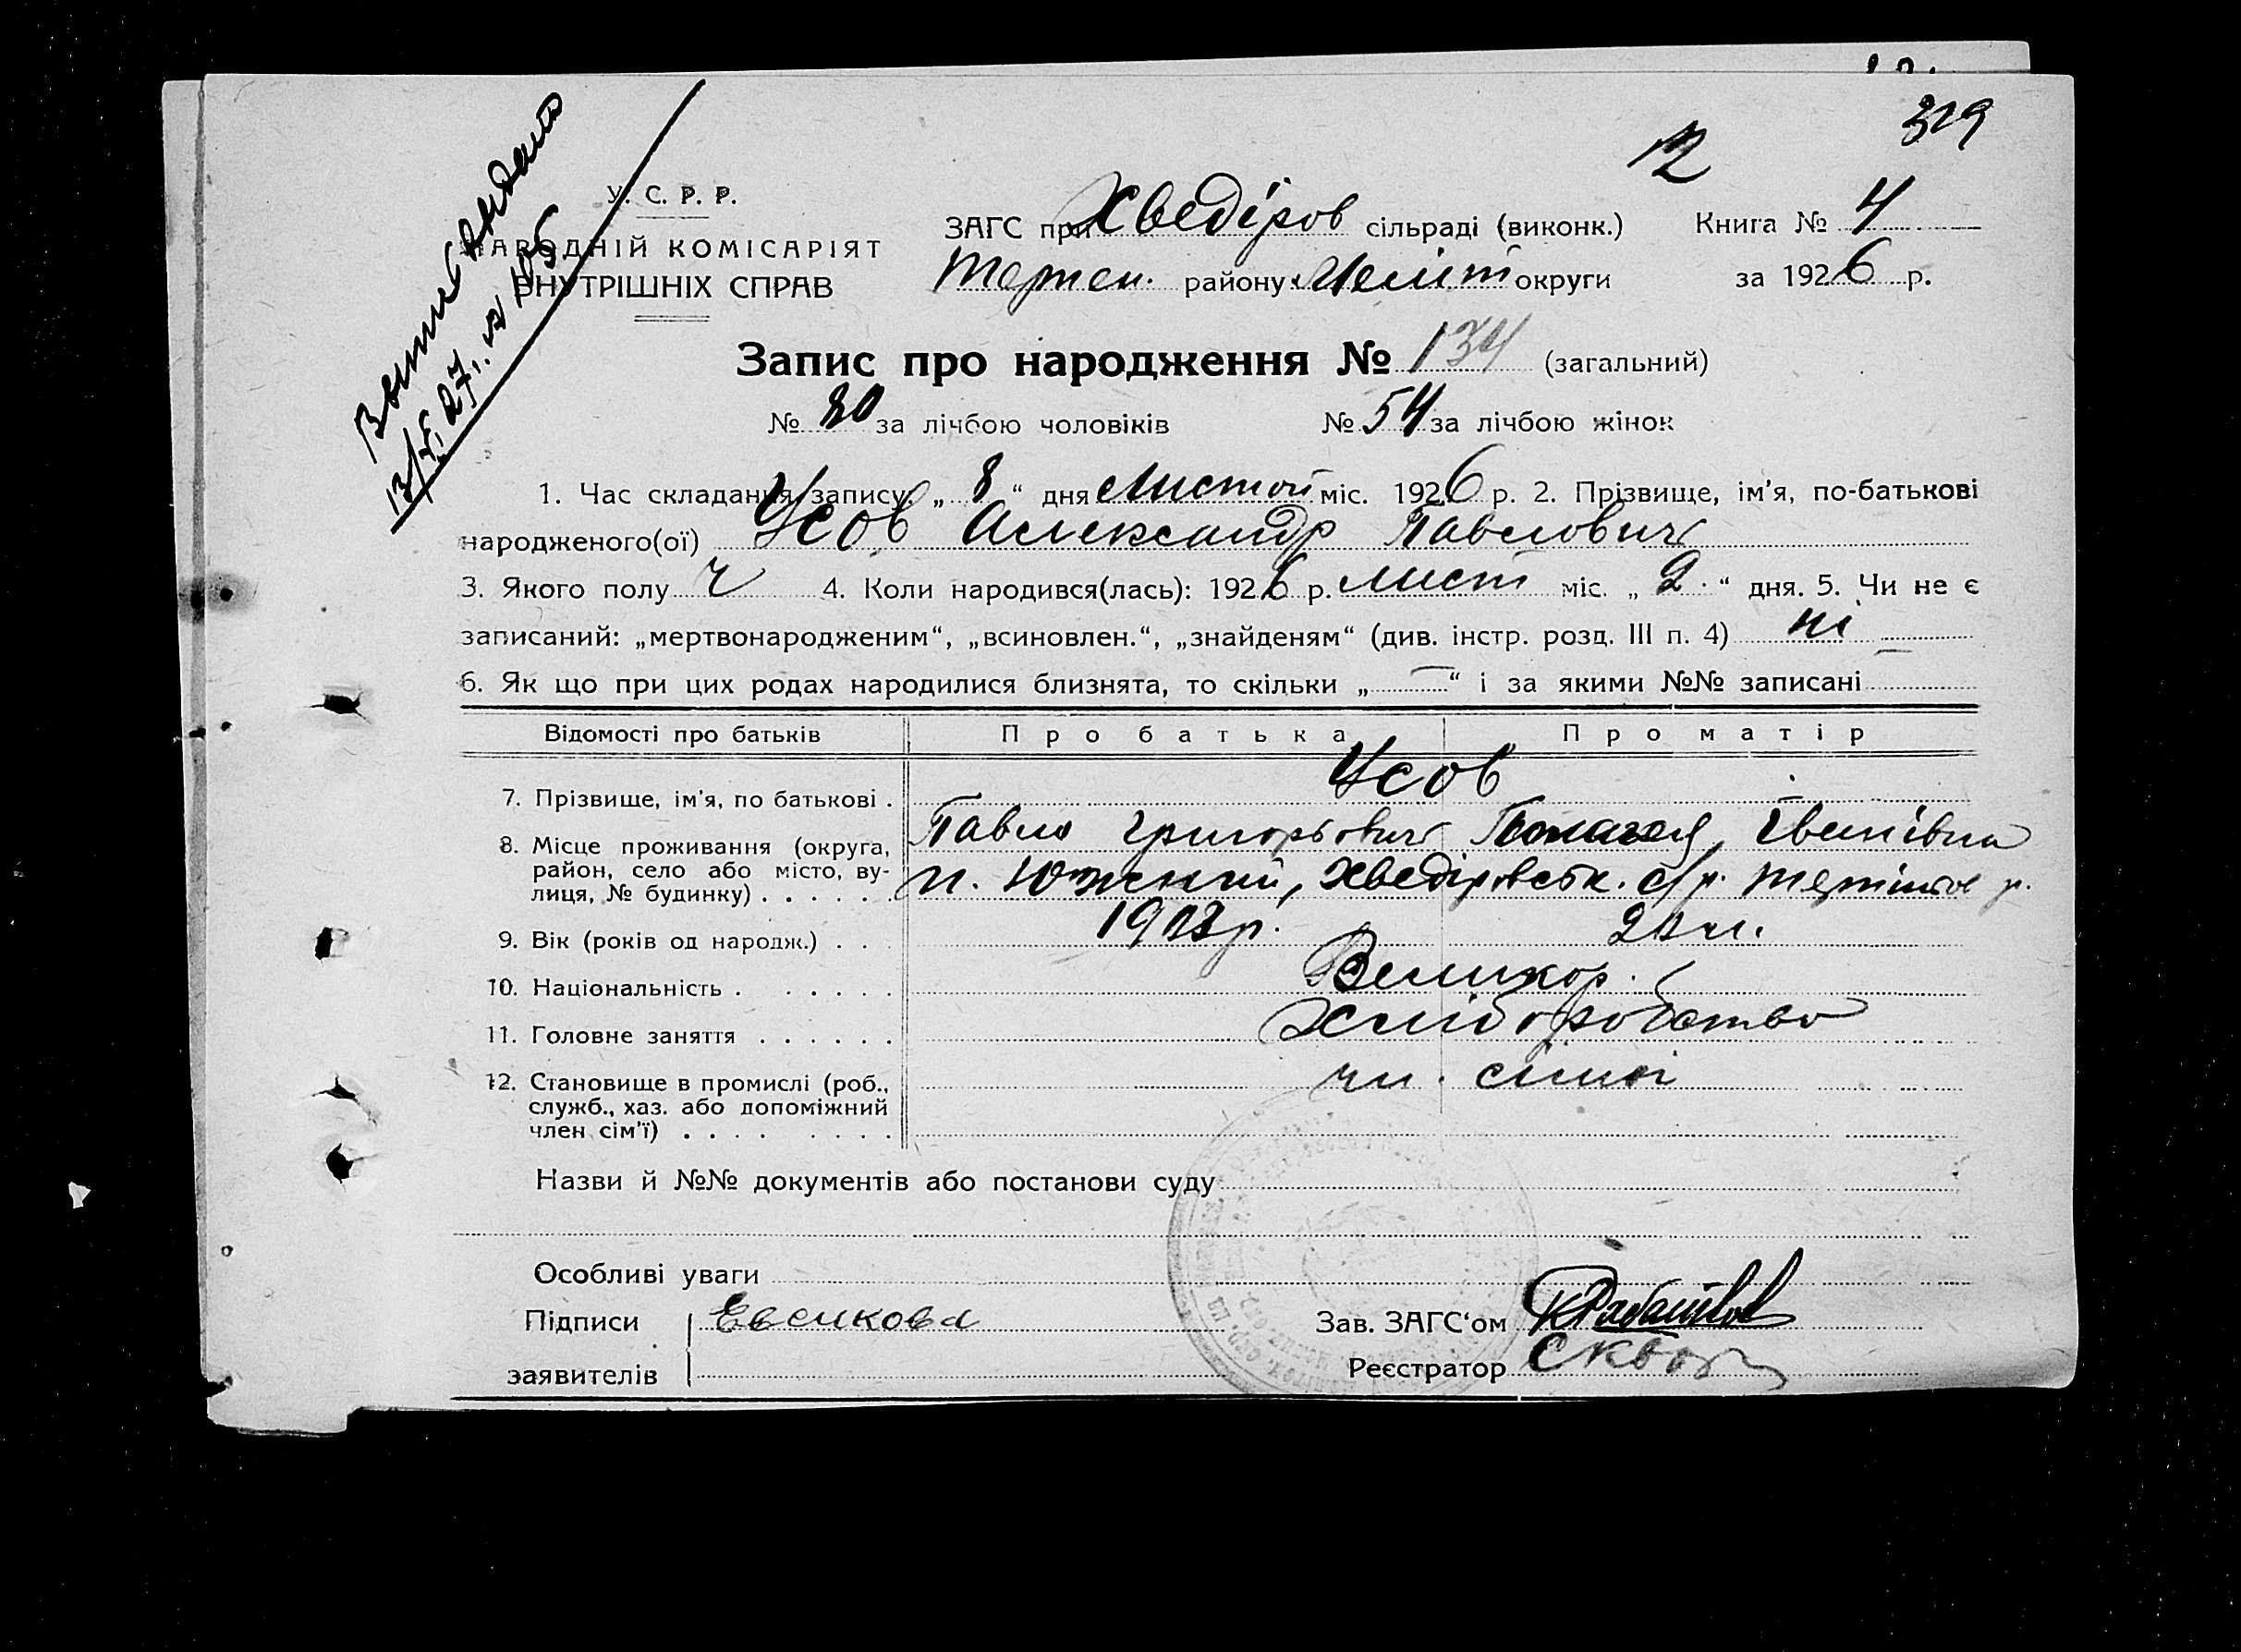 329
12
Выпись выдана
У. С. Р. Р.
НАРОДНІЙ КОМІСАРІЯТ
ВНУТРІШНІХ СПРАВ
ЗАГС при Хведіров сільраді (виконк.) Книга № 4
району Меліт округи за 1926 р.
Запис про народження № 134 (загальний)
№ 80 за лічбою чоловіків № 54 за лічбою жінок
1. Час складання запису: „ 8 “ дня Листоп міс. 1926 р. 2. Прізвище, ім'я, по-батькові
народженого(ої) Усов Александр Павлович
3. Якого полу ч 4. Коли народився(лась): 1926 р. лист міс. „ 2 “ дня. 5. Чи не є
записаний: „мертвонародженим“, „всиновлен.“, „знайденям“ (див. інстр. розд. III п. 4) ні
6. Як що при цих родах народилися близнята, то скільки „ — “ і за якими №№ записані
Відомості про батьків Про батька Про матір
7. Прізвище, ім'я, по батькові . Усов
Павло Григорьович Іванівна
8. Місце проживання (округа,
район, село або місто, ву-
лиця, № будинку) . . . . . . п. Южний, Хведіровськ. с/р.
9. Вік (років од народж.) . . .
10. Національність . . . . . . Великор.
11. Головне заняття . . . . . . Хліборобство
12. Становище в промислі (роб.,
служб., хаз. або допоміжний
член сім'ї) . . . . . . . . чл. сімї
Назви й №№ документів або постанови суду
Особливі уваги
Підписи Евсикова Зав. ЗАГС‘ом
заявителів Реєстратор